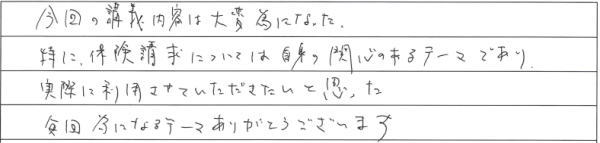 今回の講義内容は大変為になった.
特に、保険請求については自身の関心のあるテーマであり、
実際に利用させていただきたいと思った
毎回為になるテーマありがとうございます